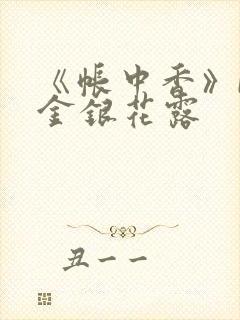 《帐中香》
金银花露
丑一一